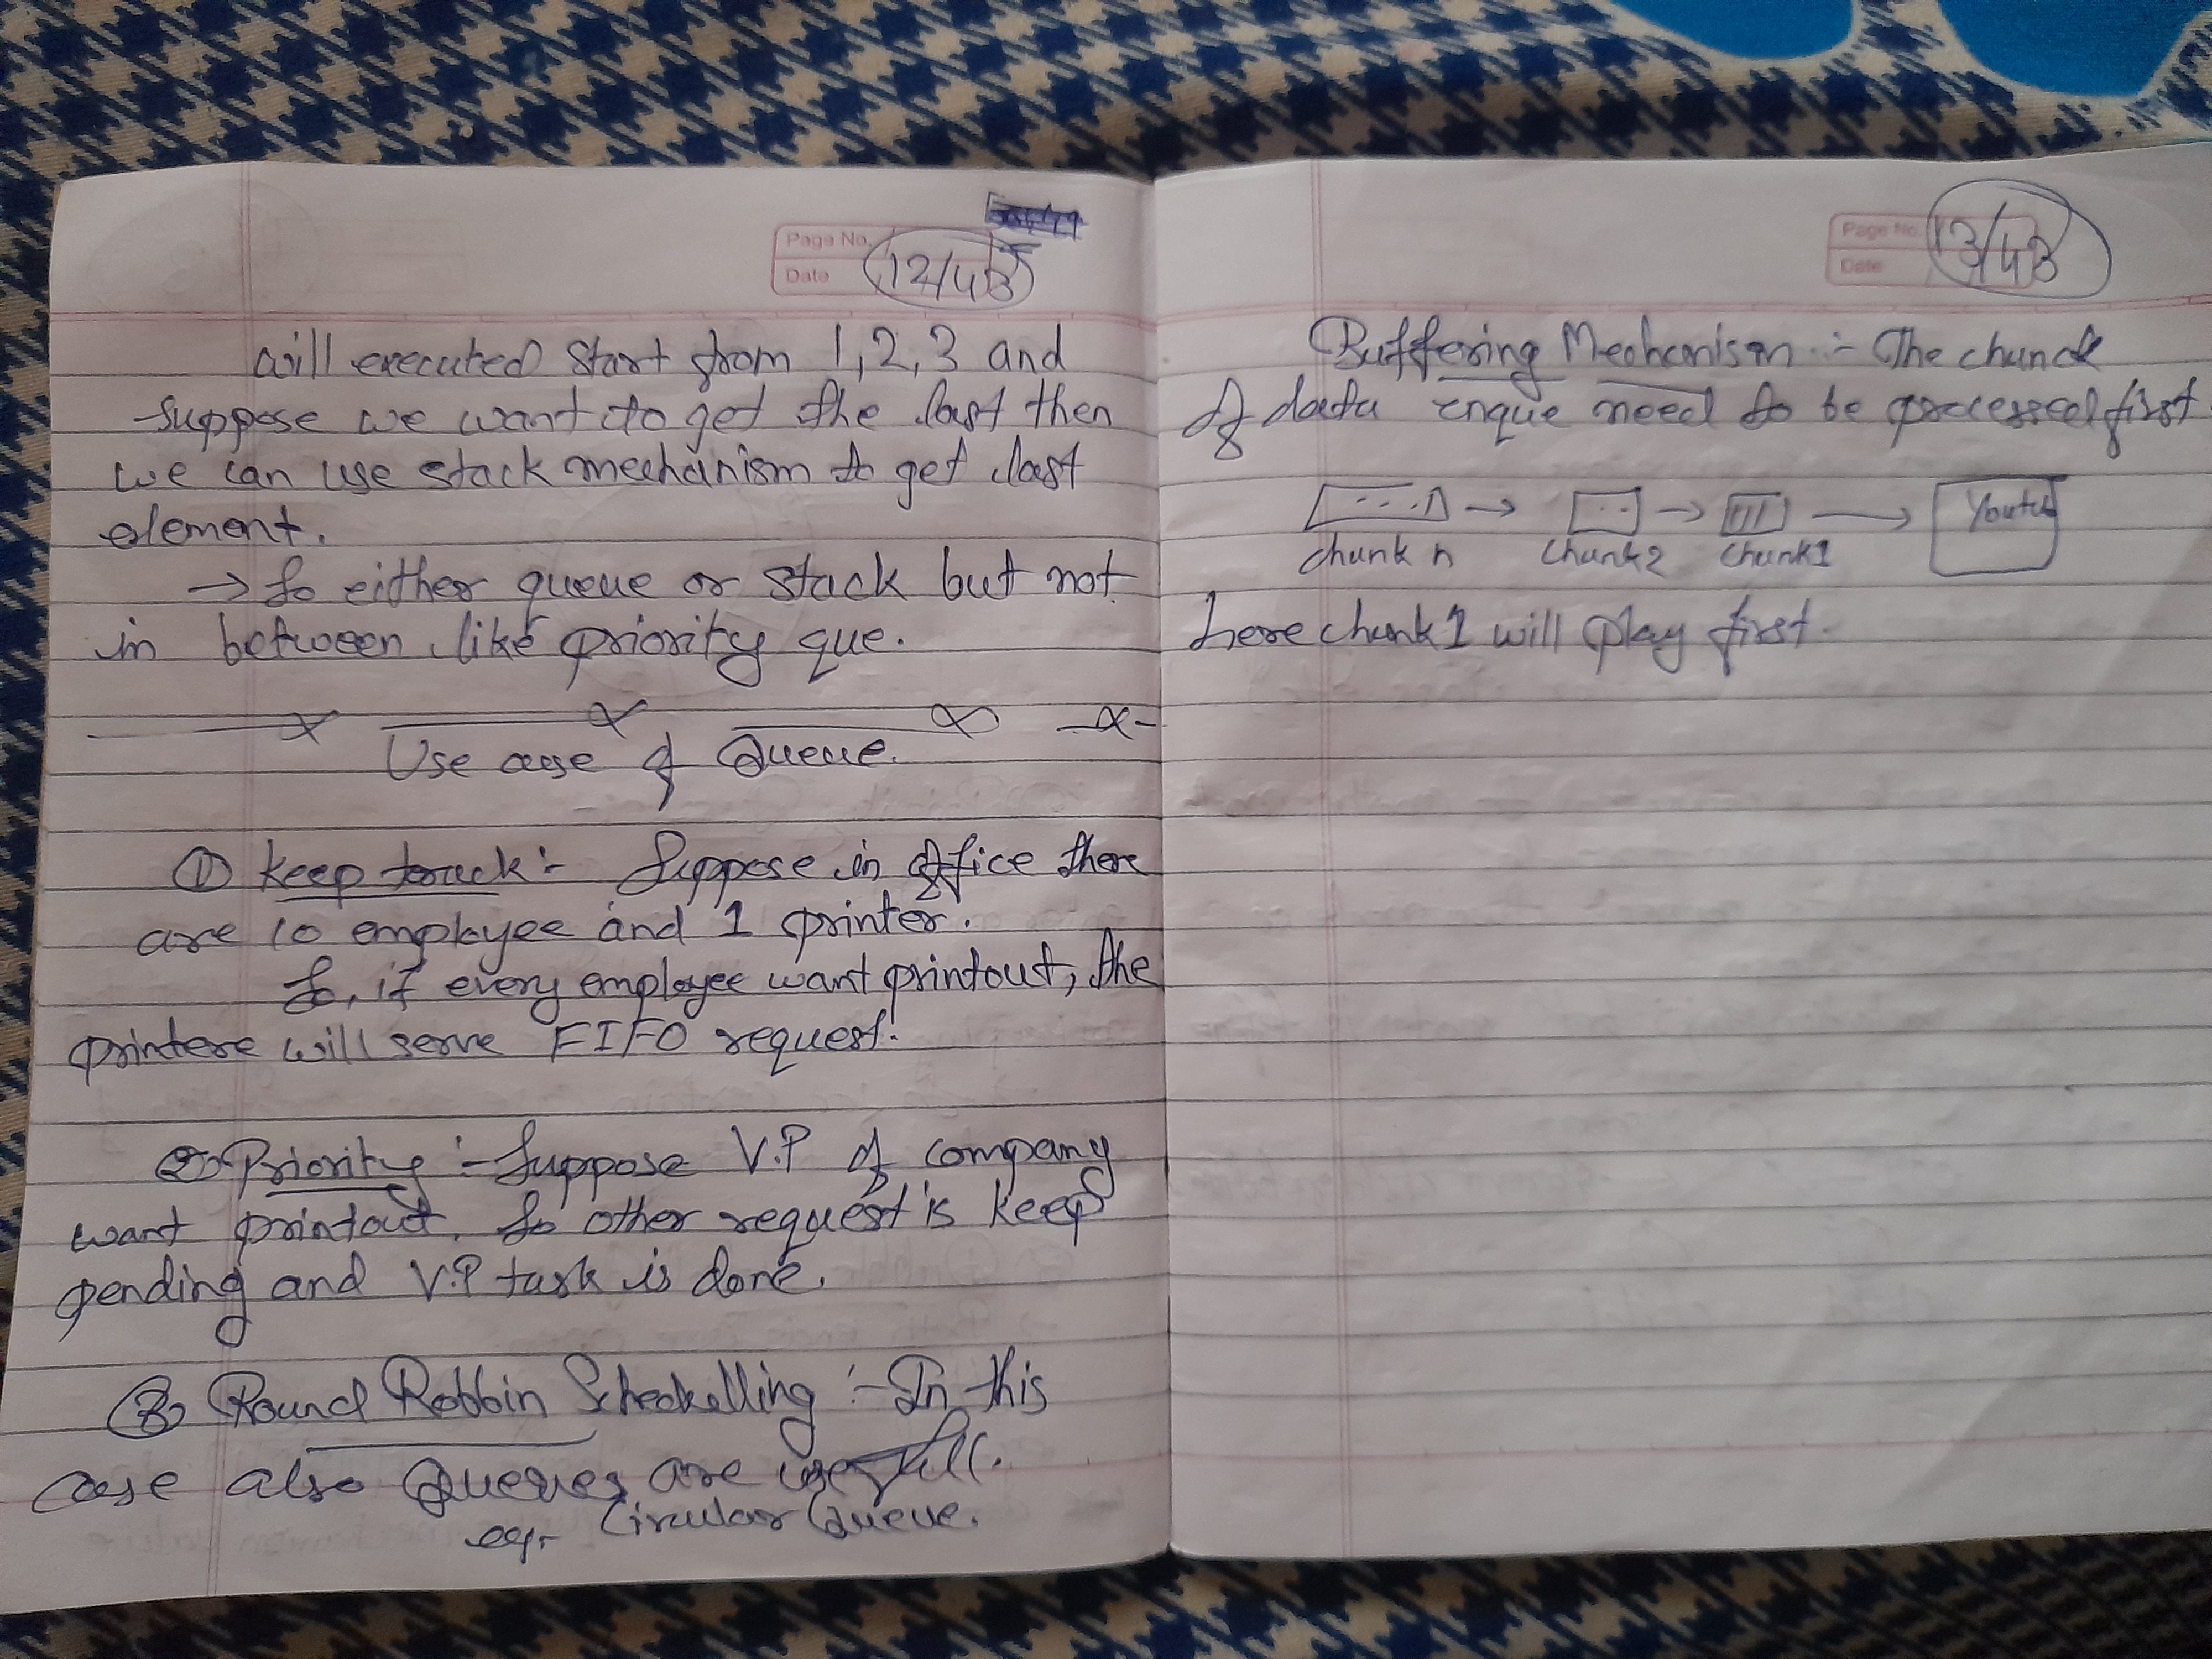 Page No.
Date
12/43
will executed start from 1, 2, 3 and
-suppose we want to get the last then
we can use stack mechanism to get last
element.
→ So either queue or stack but not
in between like priority que.
— x — x — x — x -
Use case of Queue.
① Keep track :- Suppose in office there
are 10 employee and 1 printer.
So, if every employee want printout, the
printere will serve FIFO request.
② Priority :- Suppose V.P of company
want printout, So other request is keep
pending and V.P task is done.
③ Round Robbin Schedulling :- In this
case also Queues are useful.
eg:- Circular Queue.
Page No.
Date
13/43
Buffering Mechanism :- The chunck
of data enque need to be processed first.
→ → → Youtub
chunk n chunk2 chunk1
here chunk1 will play first.